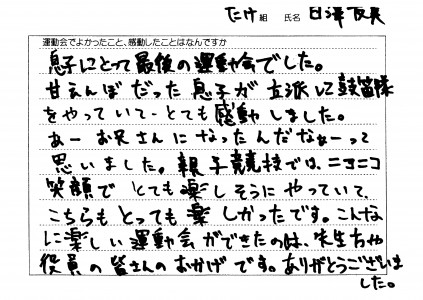 たけ組 氏名
運動会でよかったこと、感動したことはなんですか
息子にとって最後の運動会でした。
甘えんぼだった息子が立派して鼓笛隊
をやっていて、とても感動しました。
あーお兄さんになったんだなぁーって
思いました。親子競技では、ニコニコ
笑顔でとても楽しそうにやっていて、
こちらもとっても楽しかったです。こんな
に楽しい運動会ができたのは、先生方や
役員の皆さんのおかげです。ありがとうございま
した。